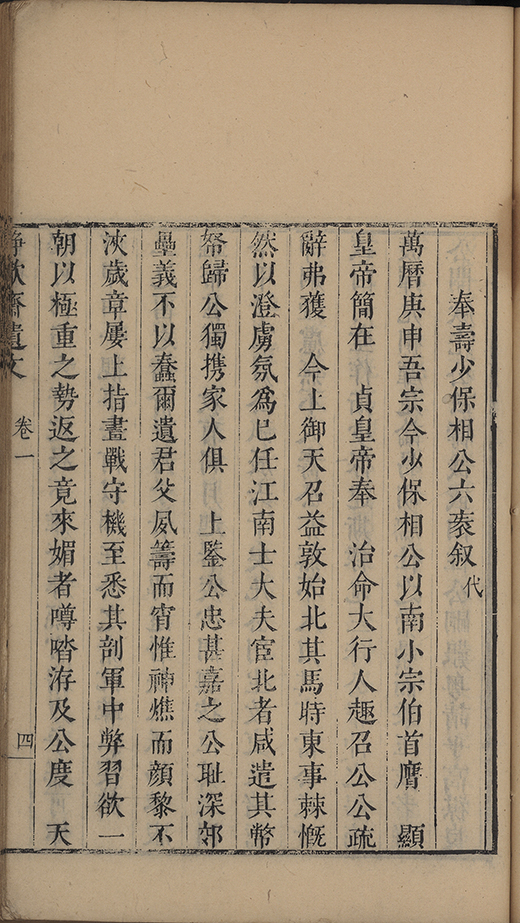 奉壽少保相公六袠叙代
萬曆庚申吾宗今少保相公以南小宗伯首膺　顯
皇帝簡在　貞皇帝奉　治命大行人趣召公公疏
辭弗獲　今上御天召益敦始北其馬時東事棘慨
然以澄虜氛爲巳任江南士大夫宦北者咸遣其幣
帑歸公獨携家人俱　上鑒公忠甚嘉之公耻深郊
壘義不以蠢爾遺君父夙籌而宵惟神燋而顔黎不
浹歲章屢上指畫戰守機至悉其剖軍中弊習欲一
朝以極重之勢返之竟來媢者噂喈洊及公度　天
遺文　卷一　四